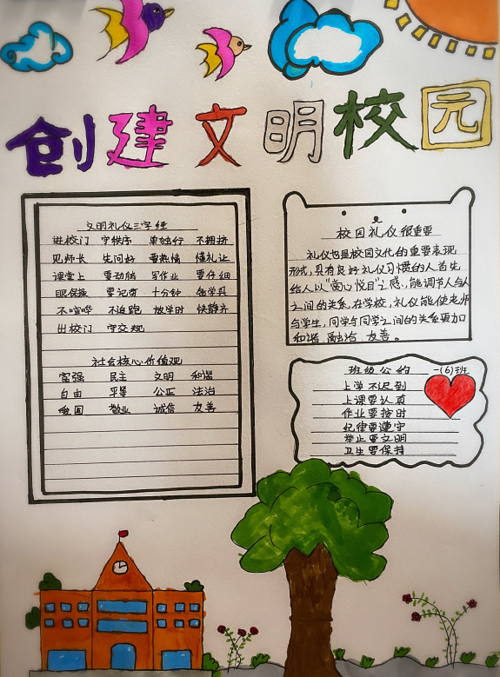 创建文明校园
文明礼仪三字经
进校门 守秩序 单独行 不拥挤
见师长 生问好 要热情 懂礼让
课堂上 要动脑 写作业 要仔细
眼保操 要记穷 十分钟 做学具
不喧哗 不追跑 放学时 快静齐
出校门 守交规
社会核心价值观
富强 民主 文明 和谐
自由 平等 公正 法治
爱国 敬业 诚信 友善
校园礼仪很重要
礼仪也是校园文化的重要表现
形式,具有良好礼仪习惯的人首先
给人以"赏心悦目"之感,能调节人与人
之间的关系,在学校,礼仪能使老师
与学生,同学与同学之间的关系更加
和谐 融洽 友善。
班级公约 一(6)班
上学不迟到
上课要认真
作业要按时
纪律要遵守
举止要文明
卫生要保持